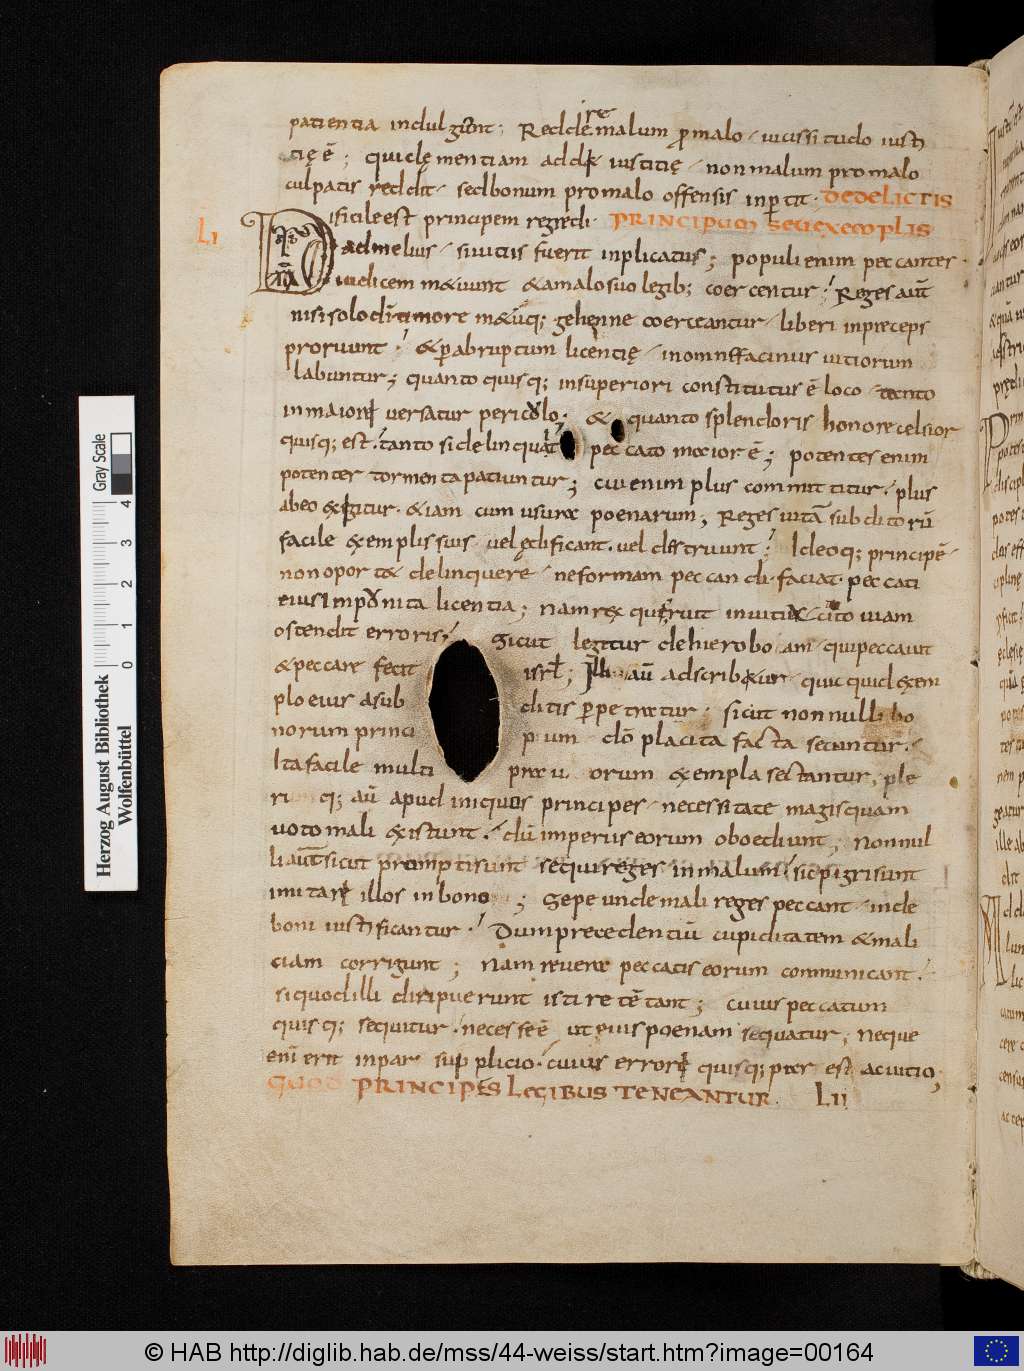 patientia indulgŧnt; Reddere malum ꝓ malo / uicissitudo iusti
tię ē; qui clęmentiam addit iustitię / non malum pro malo
culpatis reddit / sed bonum pro malo offensis inꝑtit. DE DELICTIS
LI Dificile est principem regredi. PRINCIPUM SEU EXEMPLIS
ad melius / si uitiis fuerit inplicatus; populi enim peccantes
iudicem metuunt & a malo suo legib; coercentur; Reges aūt
nisi solo di timore metuq; gehennę coerceantur / libere in preceps
proruunt; & ꝑ abruptum licentię / in omne facinus uitiorum
labuntur; quanto quisq; in superiori constitutus ē loco / tanto
in maiore uersatur periculo; & quanto splendoris honore celsior
quisq; est. tanto si delinquat peccato maior ē; potentes enim
potenter tormenta patiuntur; cui enim plus committitur. plus
ab eo exigitur. etiam cum usura poenarum; Reges uitā subditorū
facile exemplis suis uel ędificant. uel destruunt; Ideoq; principē
non oportet delinquere / ne formam peccandi. faciat. peccati
eius impunita licentia; nam rex qui ruit in uitia cito uiam
ostendit erroris; Sicut legitur de hieroboam / qui peccauit
& peccare fecit isrł; Illi aū adscribetur / quicquid exem
plo eius a sub ditis perpetratur. sicut nonnulli bo
norum princi pum dō placita facta secuntur.
Ita facile multi praua orum exempla sectantur, ple
rumq; aū apud iniquos principes / necessitate magis quam
uoto mali existunt. dū imperiis eorum oboediunt, Nonnul
li aūt sicut prompti sunt sequi reges in malum / sic pigri sunt
imitari illos in bono; Sepe unde mali reges peccant / inde
boni iustificantur. Dum precedentiū cupiditatem & mali
ciam corrigunt; Nam reuera peccatis eorum communicant.
si quod illi diripuerunt isti retētant; cuius peccatum
quisq; sequitur. necesse ē ut eius poenam sequatur; neque
enī erit inpar supplicio. cuius errore quisq; par est ac uitio;
QUOD PRINCIPES LEGIBUS TENEANTUR. LII
Herzog August Bibliothek
Wolfenbüttel
Gray Scale
0 1 2 3 4
© HAB http://diglib.hab.de/mss/44-weiss/start.htm?image=00164